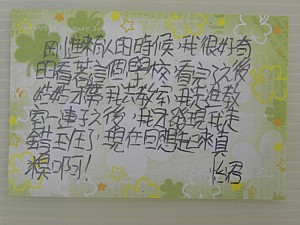 剛進來的時候,我很好奇
的看著這個學校,看完之後
姓姓才帶我去教室,我進教
室一連子之後,我才發現我走
錯班了,現在回想起來真
糗啊!
怡君